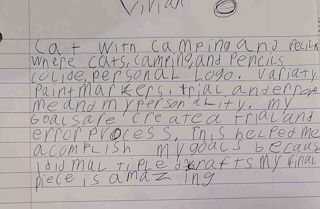 Vivian
Cat with camping and pecils
where cats, camping, and pencils
collide, personal Logo. Variaty
Paint markers, trial anderror
me and my person ality. my
goals are create a trial and
error process. This helped me
acomplish my goals becaus
I did mul tiple drafts my final
piece is amaz ing